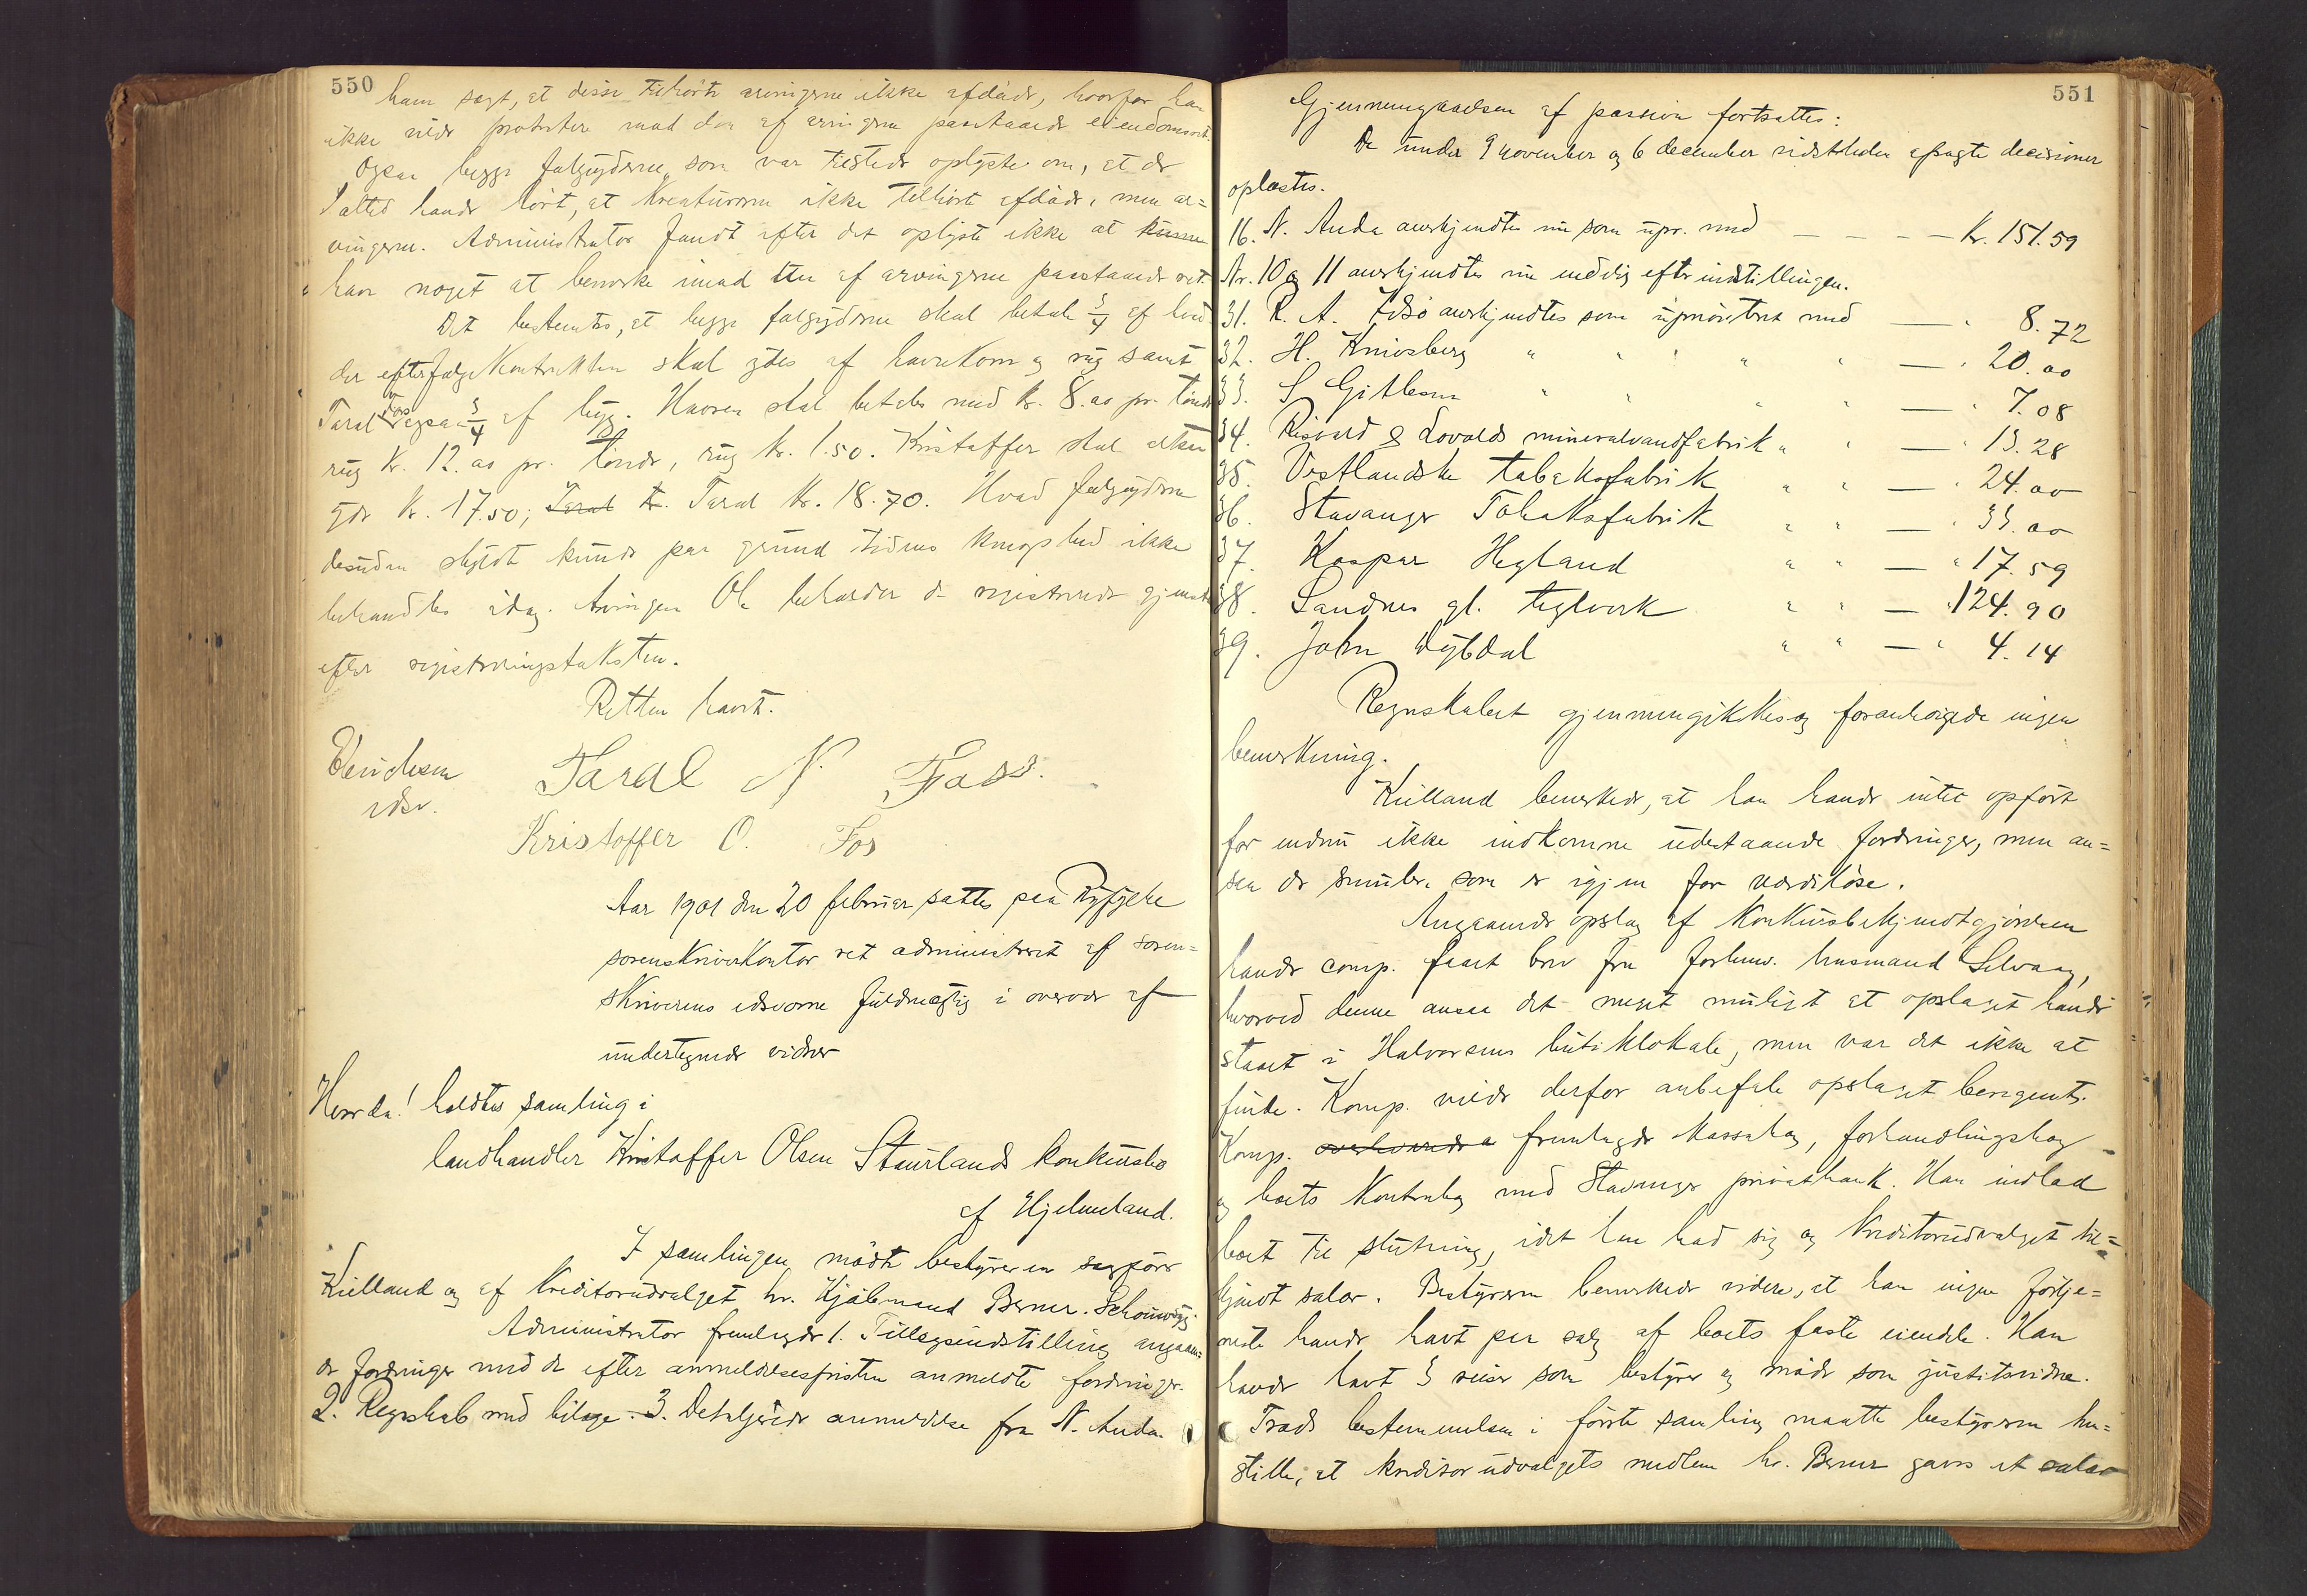 550
ham sagt, at disse tilhørte arvingerne ikke afdøde, hvorfor han
ikke vilde protestere mod den af arvingerne paastaaede eiendomsret.
Ogsaa begge følgyderne, som var tilstede oplyste om, at de
altid havde hørt, at kreaturerne ikke tilhørte afdøde, men ar=
vingerne. Administrator fandt efter det oplyste ikke at kunne
have noget at bemerke imod den af arvingerne paastaaede ret.
Det bestemtes, at begge følgyderne skal betale 3/4 af hvad
der efter følgekontrakten skal ydes af havrekorn og rug samt
Taral Fos ogsaa 3/4 af byg. Havren skal betales med kr. 8.00 pr. tønde
rug kr. 12.00 pr. tønde, rug kr. 1.50. Kristoffer skal altsaa
yde kr. 17.50; Taral kr. Taral kr. 18.70. Hvad følgyderne
desuden skyldte kunde paa grund tidens knaphed ikke
behandles idag. Arvingen Ole beholder de registrerede gjenstande
efter registreringstaksten.
Retten hævet.
edsv.
Taral N. Foss.
Kristoffer O. Fos
Aar 1901 den 20 februar sattes paa Ryfylke
sorenskriverkontor ret administreret af soren=
skriverens edsvorne fuldmægtig i overvær af
undertegnede vidner
Hvorda! holdtes samling i
landhandler Kristoffer Olsen Staurlands konkursbo
af Hjelmeland.
I samlingen mødte bestyreren sagfører
Kielland og af kreditorudvalget hr. Hjalmand Berner. Schouw
Administrator fremlagde 1. Tillægsindstilling angaaen=
de fordringer med de efter anmeldelsesfristen anmeldte fordringer.
2. Regnskab med bilage. 3. Detaljerede anmeldelse fra N. Anda.
551
Gjennemgaaelsen af passiva fortsattes:
De under 9 november og 6 december sidstleden afsagte decisioner
oplæstes.
16. N. Anda anerkjendtes nu som upr. med — — — — Kr. 151.59
Nr. 10 og 11 anerkjendtes nu endelig efter indstillingen.
31. R. A. Idsø anerkjendtes som uprioriteret med — " 8.72
32. H. Kniosberg " " " " " — " 20.00
33. S Gitlesen " " " " — " 7.08
34. Risvold & Lovolds mineralvandfabrik " " — " 13.28
35. Vestlandske tabaksfabrik " " — " 24.00
36. Stavanger Tobaksfabrik " " — " 33.00
37. Kaspar Hegland " " — " 17.59
38. Sandnes gl. teglverk " " — " 124.90
39. John Dybdal " " — " 4.14
Regnskabet gjennemgikkes og foranledigede ingen
bemerkning.
Kielland bemerkede, at han havde intet opført
for endnu ikke indkomne udestaaende fordringer, men an=
saa de smuler som er igjen for verdiløse.
Angaaende opslag af konkursbekjendtgjørelsen
havde comp. faaet brev fra forhenv. husmand Selvaag,
hvorved denne ansaa det meget muligt at opslaget havde
staaet i Halvorsens butiklokale, men var det ikke at
finde. Komp. vilde derfor anbefale opslaget berigent.
Komp. fremlagde kassabog, forhandlingsbog
og boets kontrabog med Stavanger privatbank. Han indlod
boet til slutning, idet han bad sig og kreditorudvalget til=
kjendt salær. Bestyreren bemerkede videre, at han ingen fortje=
neste havde havt paa salg af boets faste eiendele. Han
havde havt 3 reiser som bestyrer og møde som justitsvidne.
Trods bestemmelsen i første samling maatte bestyreren hen=
stille, at kreditorudvalgets medlem hr. Berner gaves et salær